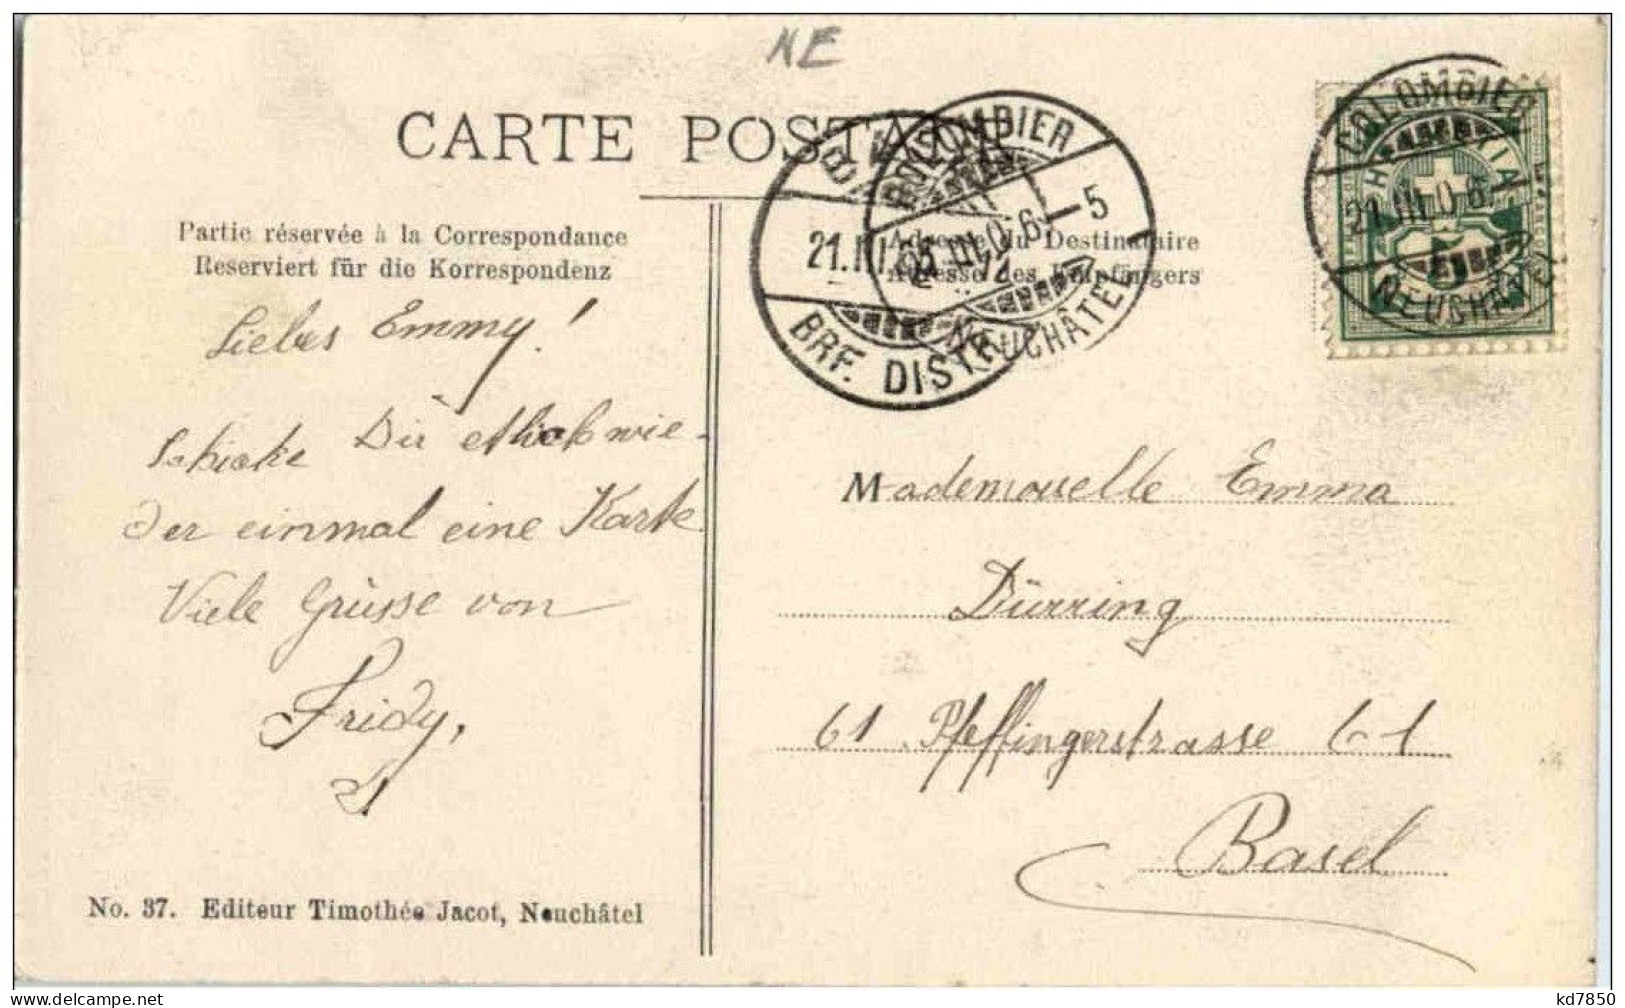 NE
CARTE POSTALE
COLOMBIER
21.III.06.-5
NEUCHÂTEL
BRF. DISTR.
21.III
COLOMBIER
21.III.06
NEUCHÂTEL
5
Partie réservée à la Correspondance
Reserviert für die Korrespondenz
Adresse du Destinataire
Adresse des Empfängers
Liebes Emmy!
Schicke Dir wie-
der einmal eine Karte
Viele Grüsse von
Fridy,
Mademoiselle Emma
Dürring
61 Pfeffingerstrasse 61
Basel
No. 37. Editeur Timothée Jacot, Neuchâtel
kd7850